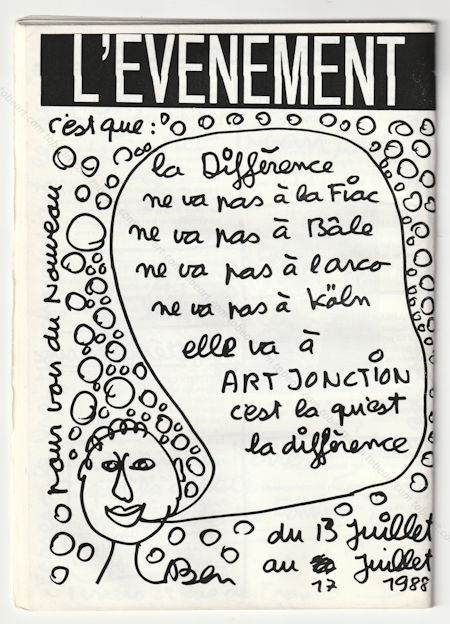 L'EVENEMENT
c'est que :
la Différence
ne va pas à la Fiac
ne va pas à Bâle
ne va pas à l'arco
ne va pas à Köln
elle va à
ART JONCTION
c'est la qu'est
la différence
pour voir du Nouveau
du 13 Juillet
au Juillet
17 1988
Ben